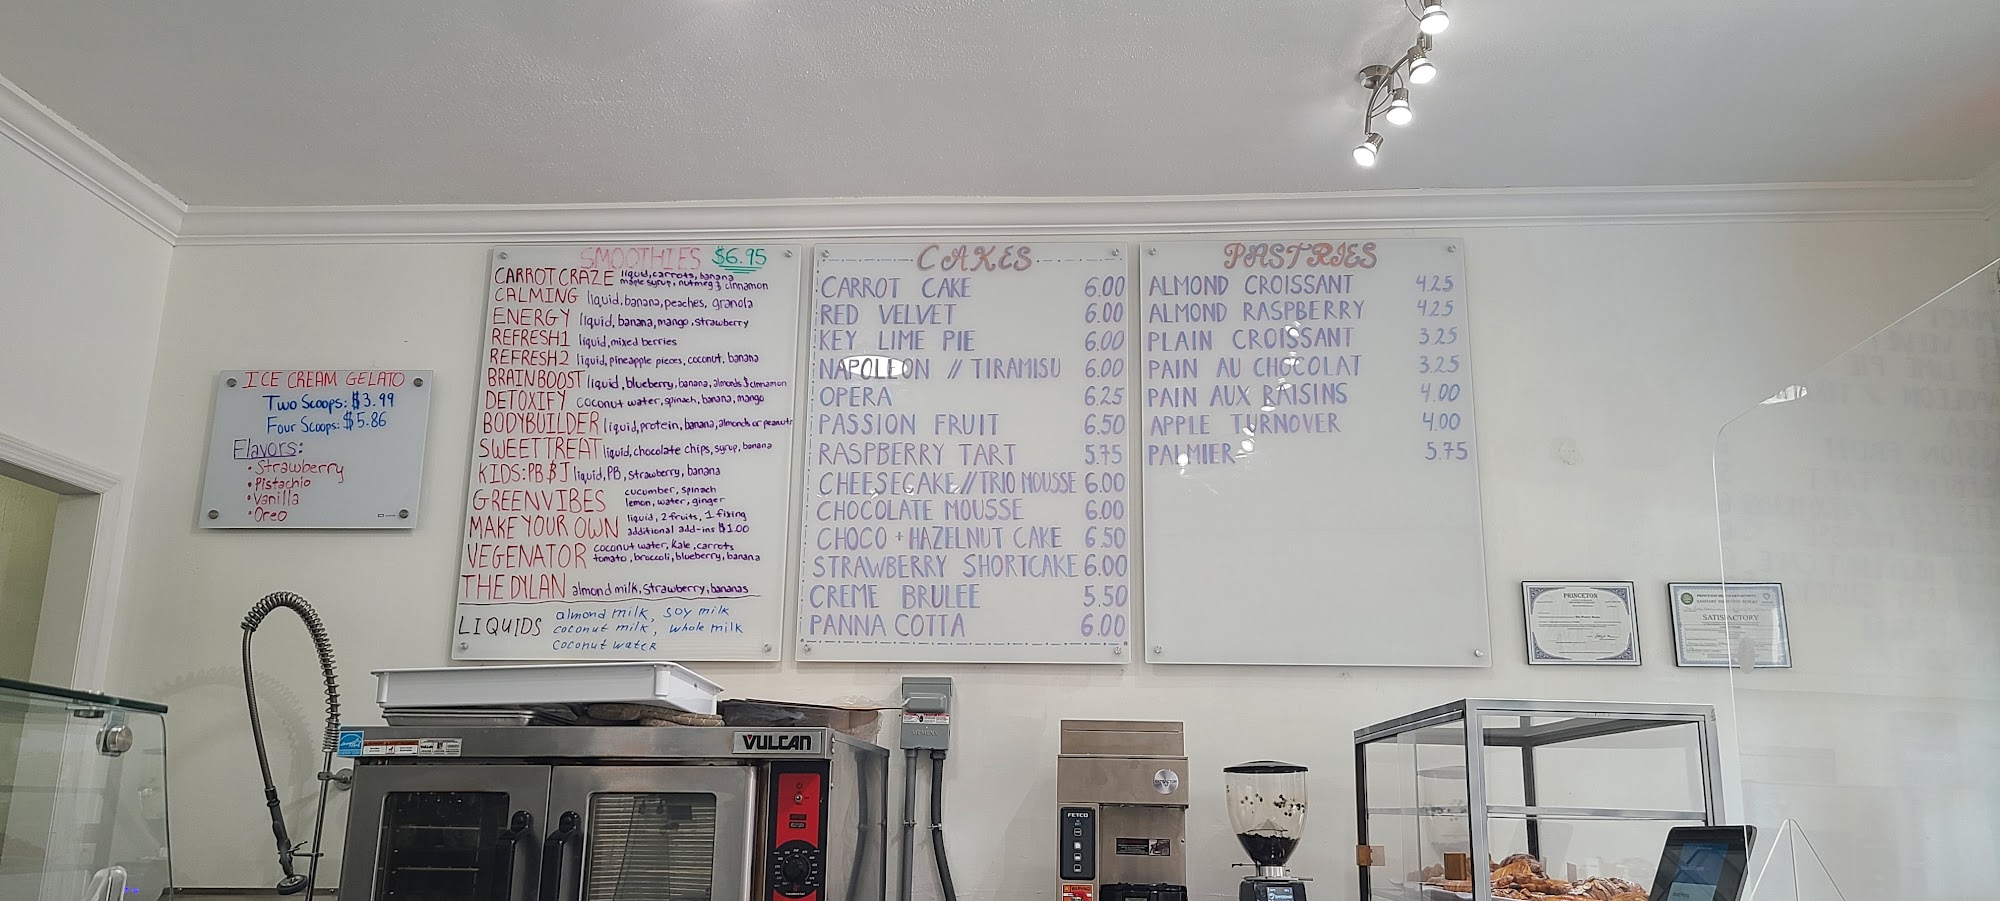 ICE CREAM GELATO
Two Scoops: $3.99
Four Scoops: $5.86
Flavors:
• Strawberry
• Pistachio
• Vanilla
• Oreo
SMOOTHIES $6.95
CARROT CRAZE liquid, carrots, banana
maple syrup, nutmeg & cinnamon
CALMING liquid, banana, peaches, granola
ENERGY liquid, banana, mango, strawberry
REFRESH1 liquid, mixed berries
REFRESH2 liquid, pineapple pieces, coconut, banana
BRAINBOOST liquid, blueberry, banana, almonds & cinnamon
DETOXIFY coconut water, spinach, banana, mango
BODYBUILDER liquid, protein, banana, almonds or peanuts
SWEETTREAT liquid, chocolate chips, syrup, banana
KIDS: PB & J liquid, PB, strawberry, banana
GREENVIBES cucumber, spinach
lemon, water, ginger
MAKE YOUR OWN liquid, 2 fruits, 1 fixing
additional add-ins $1.00
VEGENATOR coconut water, kale, carrots
tomato, broccoli, blueberry, banana
THE DYLAN almond milk, strawberry, bananas
LIQUIDS almond milk, soy milk
coconut milk, whole milk
coconut water
CAKES
CARROT CAKE 6.00
RED VELVET 6.00
KEY LIME PIE 6.00
NAPOLEON // TIRAMISU 6.00
OPERA 6.25
PASSION FRUIT 6.50
RASPBERRY TART 5.75
CHEESECAKE // TRIO MOUSSE 6.00
CHOCOLATE MOUSSE 6.00
CHOCO + HAZELNUT CAKE 6.50
STRAWBERRY SHORTCAKE 6.00
CREME BRULEE 5.50
PANNA COTTA 6.00
PASTRIES
ALMOND CROISSANT 4.25
ALMOND RASPBERRY 4.25
PLAIN CROISSANT 3.25
PAIN AU CHOCOLAT 3.25
PAIN AUX RAISINS 4.00
APPLE TURNOVER 4.00
PALMIER 5.75
PRINCETON
SATISFACTORY
VULCAN
SIEMENS
FETCO